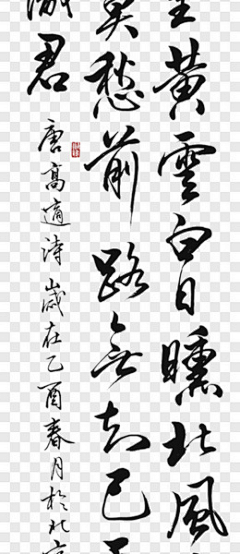 里黄雲白日曛北風
莫愁前路無知己
識君
唐高適詩 歲在乙酉春月於北